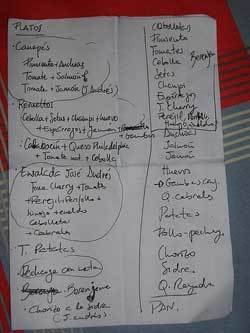 PLATOS
- Canapés
Pimiento + Anchoas
Tomate + Salmón
Tomate + Jamón (J. Andrés)
- Revueltos
Cebolla + Setas + Champi + Huevo
+ Espárragos + Jamón
+ Gambas
- Calabacín + Queso Philadelphia
+ Tomate nat. + Cebolla
- Ensalada José Andrés
Toma Cherry + Tomate
+ Perejil + Perifollo +
hinojo + eneldo
Cebolleta
+ Cabrales
- T. Patatas
- Pechuga con
- Berenjena
- Chorizo a la sidra
(J. Andrés)
Pimiento
Tomates
Cebolla
Berenjena
Setas
Champi
Espárragos
T. Cherry
Perejil
Anchoas
Salmón
Jamón
Huevos
Q. cabrales
Patatas
Pollo - pechuga
Chorizo
Sidra
Q. Rayado
PAN.